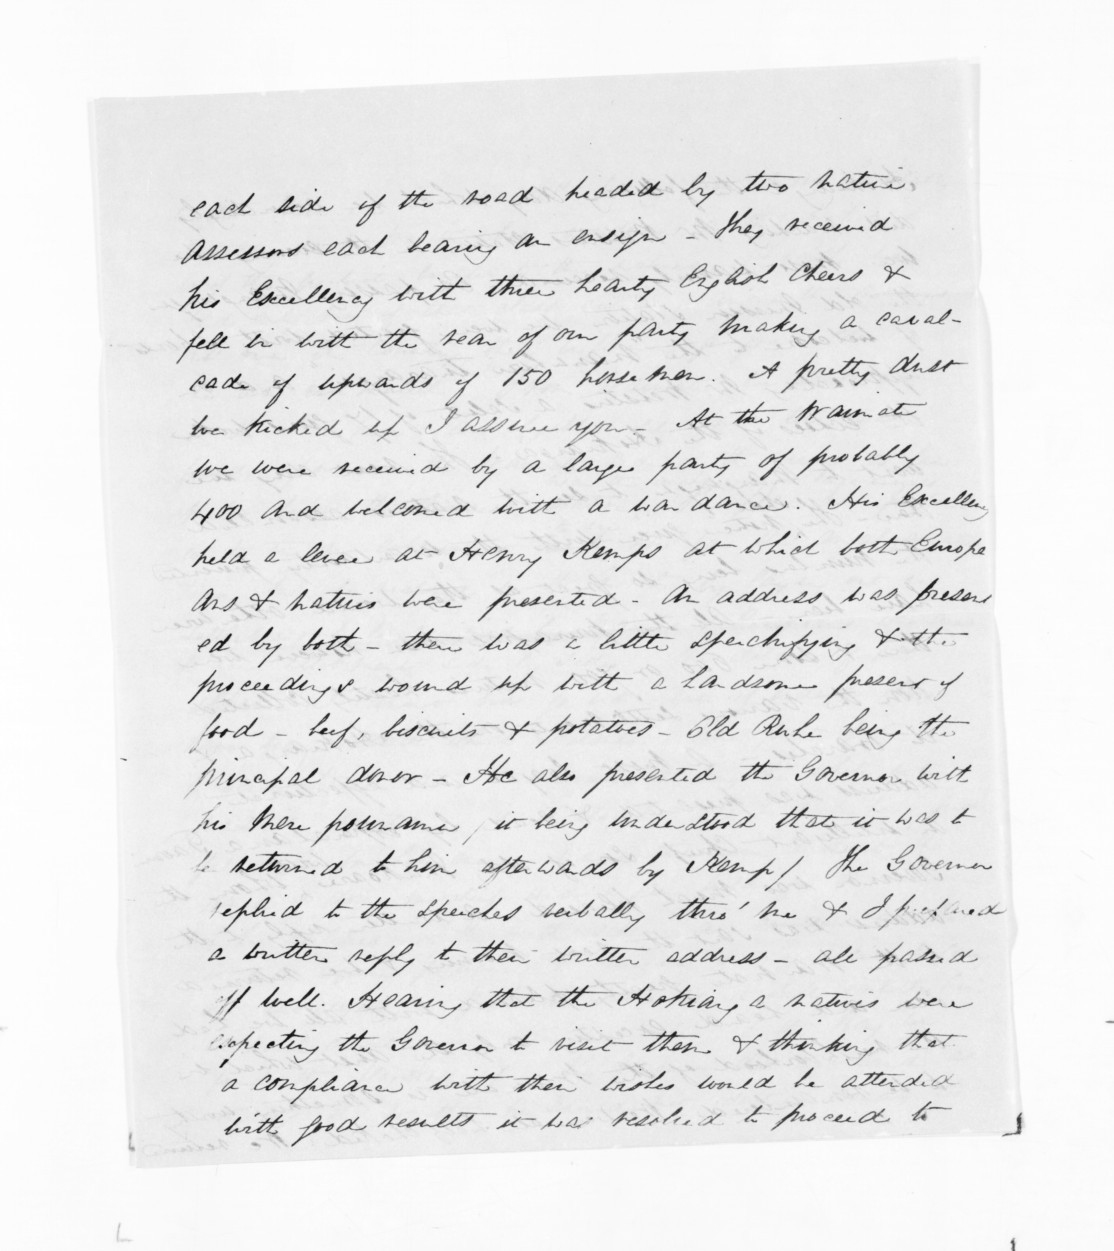 each side of the road headed by two native
Assessors each bearing an ensign - They received
his Excellency with three hearty English Cheers &
fell in with the rear of our party making a caval-
cade of upwards of 150 horsemen. A pretty dust
we kicked up I assure you - At the Waimate
we were received by a large party of probably
400 and welcomed with a war dance. His Excellency
held a levee at Henry Kemps at which both Europe
ans & natives were presented - An address was present
ed by both - there was a little speechifying & the
proceedings wound up with a handsome present of
food - beef, biscuits & potatoes - Old Ruhe being the
principal donor - He also presented the Governor with
his mere pounamu, it being understood that it was to
be returned to him afterwards by Kemp / The Governor
replied to the speeches verbally thro' me & I prepared
a written reply to their written address - all passed
off well. Hearing that the Hokianga natives were
expecting the Governor to visit them & thinking that
a compliance with their wishes would be attended
with good results it was resolved to proceed to